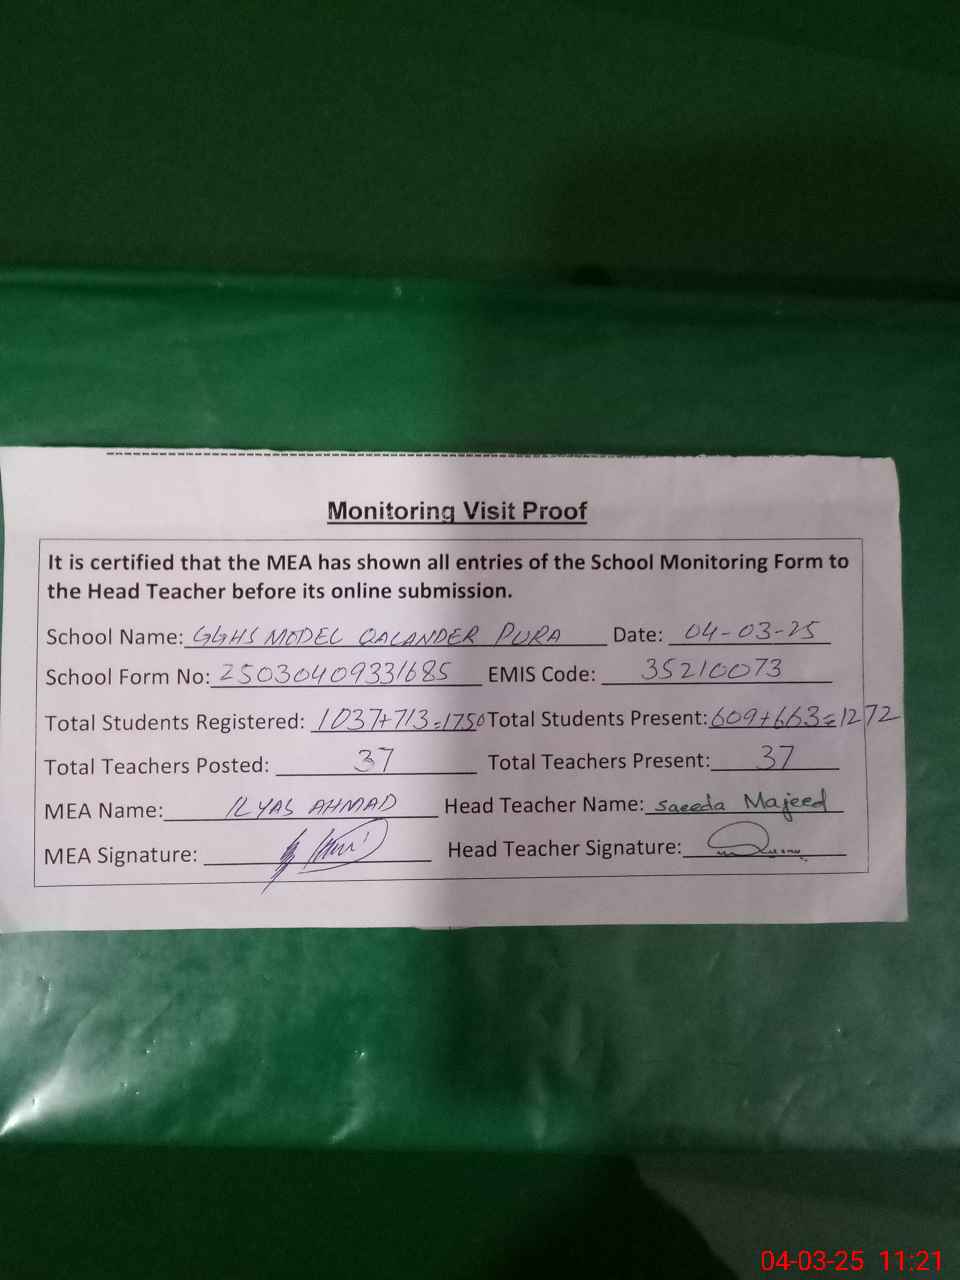 Monitoring Visit Proof
It is certified that the MEA has shown all entries of the School Monitoring Form to
the Head Teacher before its online submission.
School Name: GGHS MODEL QALANDER PURA Date: 04-03-25
School Form No: 25030409331685 EMIS Code: 35210073
Total Students Registered: 1037+713=1750 Total Students Present: 609+663=1272
Total Teachers Posted: 37 Total Teachers Present: 37
MEA Name: ILYAS AHMAD Head Teacher Name: Saeeda Majeed
MEA Signature: Head Teacher Signature:
04-03-25 11:21